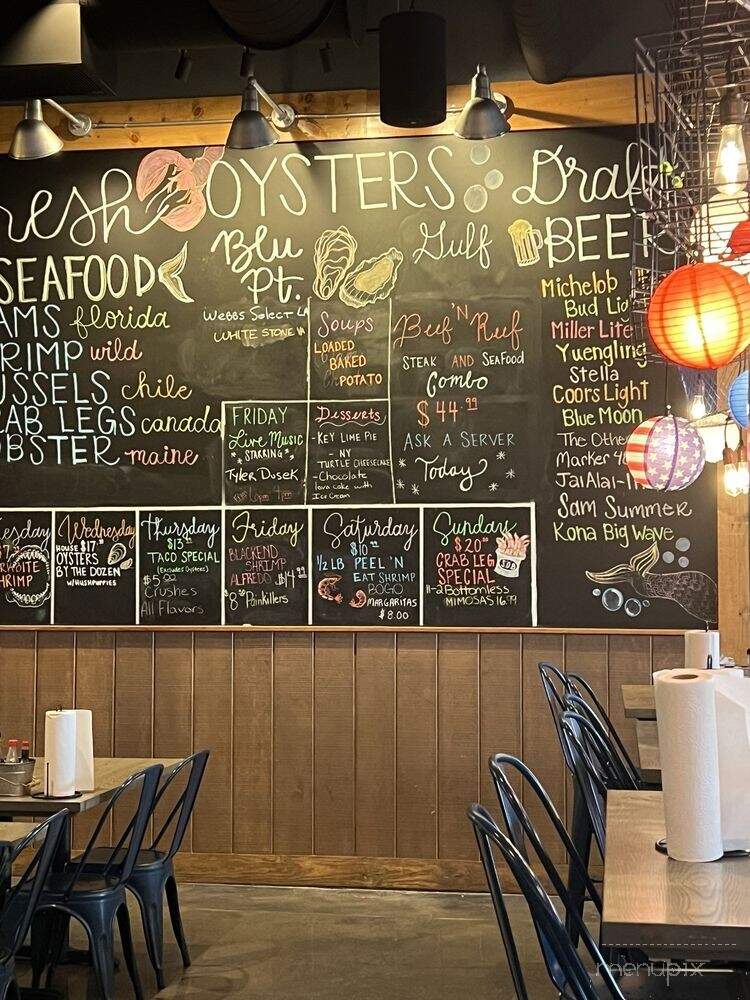 resh OYSTERS Draf
SEAFOOD
AMS florida
RIMP wild
USSELS chile
RAB LEGS canada
OBSTER maine
Blu
Pt.
Gulf
Webbs Select LA
WHITE STONE VA
Soups
LOADED
BAKED
POTATO
FRIDAY
Live Music
*STARRING*
Tyler Dusek
Desserts
-KEY LIME PIE
- NY
TURTLE CHEESECAKE
-Chocolate
lava cake with
Ice Cream
Beef 'N Reef
STEAK AND SEAFOOD
Combo
$44.99
ASK A SERVER
Today
BEE
Michelob
Bud Li
Miller Lite
Yuengling
Stella
Coors Light
Blue Moon
The Othe
Marker 4
Jai Alai-I
Sam Summer
Kona Big Wave
esday
BITE
HRIMP
Wednesday
HOUSE $17
OYSTERS
BY THE DOZEN
W/HUSHPUPPIES
Thursday
$13
TACO SPECIAL
(Excludes Oysters)
$5.00
Crushes
All Flavors
Friday
BLACKEND
SHRIMP
ALFREDO $14.99
$8 Painkillers
Saturday
$10
1/2 LB PEEL 'N
EAT SHRIMP
BOGO
MARGARITAS
$8.00
Sunday
$20
CRAB LEG
SPECIAL
11-2 Bottomless
MIMOSAS 16.99
menupix